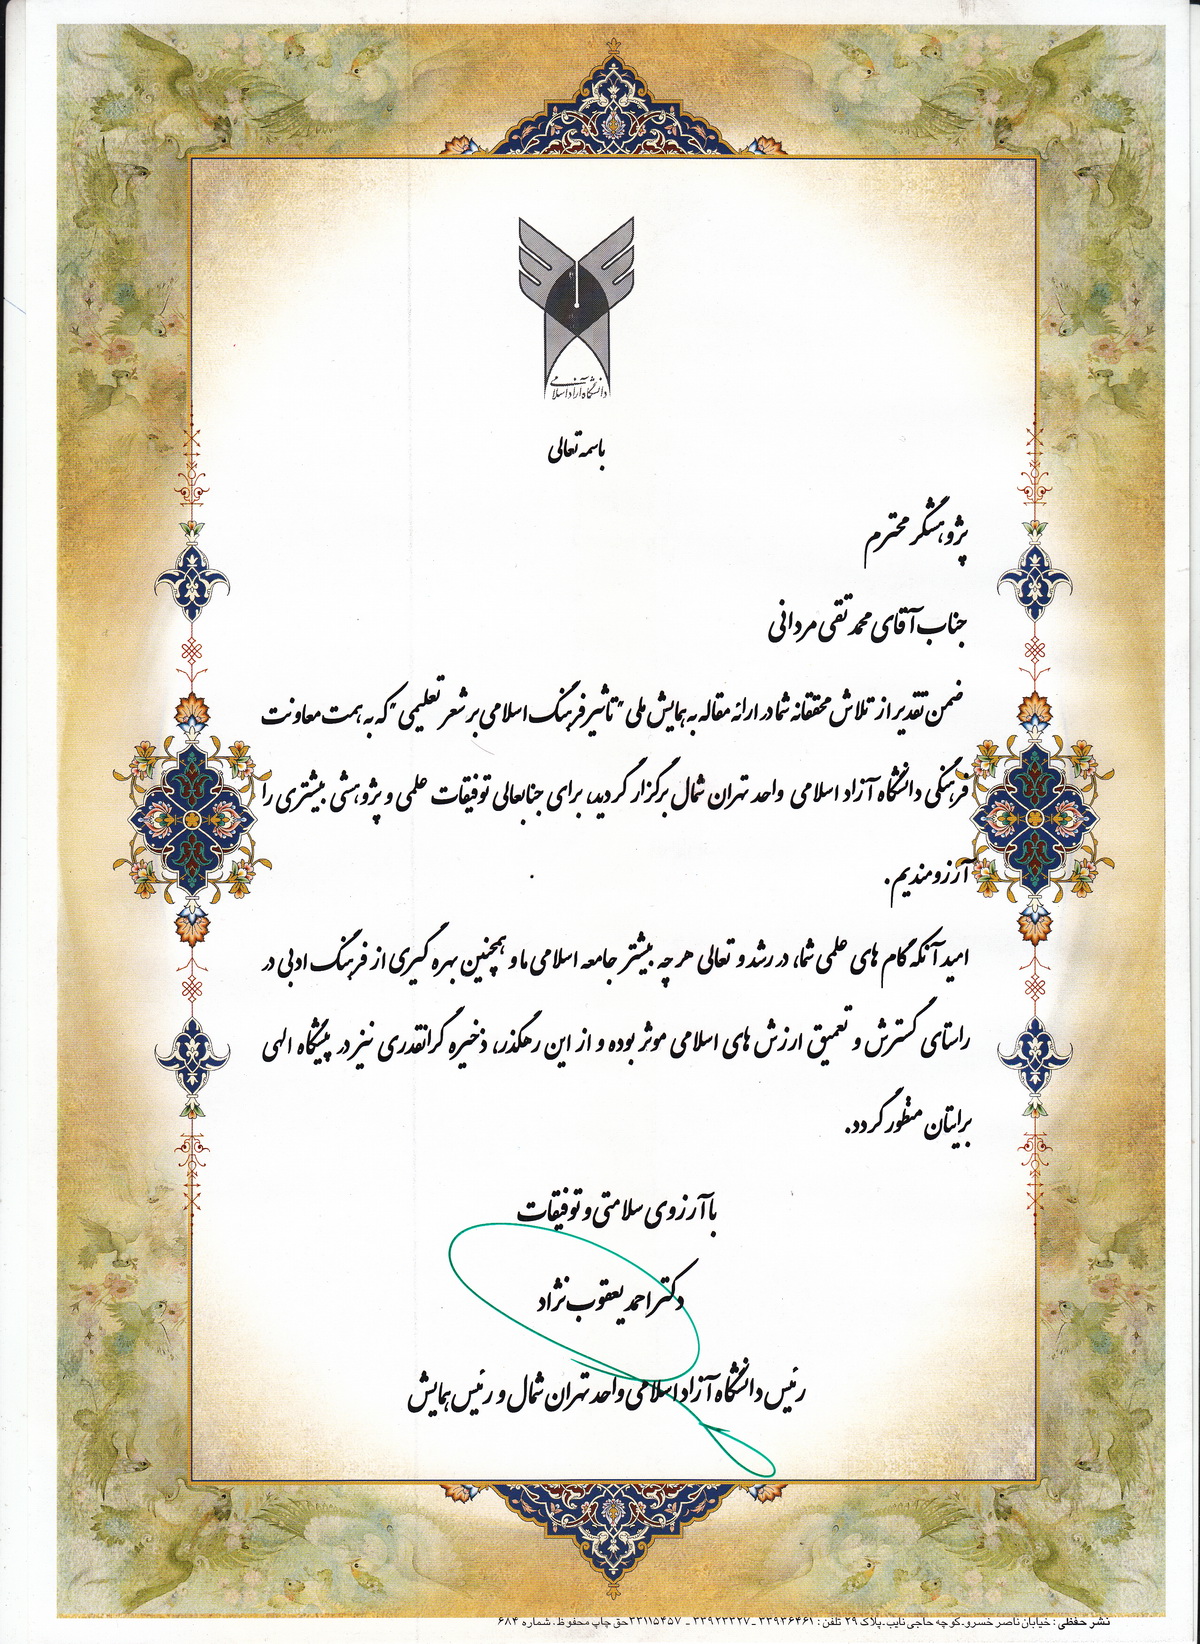 دانشگاه آزاد اسلامی
باسمه تعالی
پژوهشگر محترم
جناب آقای محمد تقی مردانی
ضمن تقدیر از تلاش محققانه شما در ارائه مقاله به همایش ملی "تاثیر فرهنگ اسلامی بر شعر تعلیمی" که به همت معاونت
فرهنگی دانشگاه آزاد اسلامی واحد تهران شمال برگزار گردید، برای جنابعالی توفیقات علمی و پژوهشی بیشتری را
آرزومندیم.
امید آنکه گام های علمی شما، در رشد و تعالی هر چه بیشتر جامعه اسلامی ما و همچنین بهره گیری از فرهنگ ادبی در
راستای گسترش و تعمیق ارزش های اسلامی موثر بوده و از این رهگذر، ذخیره گرانقدری نیز در پیشگاه الهی
برایتان منظور گردد.
با آرزوی سلامتی و توفیقات
دکتر احمد یعقوب نژاد
رئیس دانشگاه آزاد اسلامی واحد تهران شمال و رئیس همایش
نشر حفظی : خیابان ناصر خسرو، کوچه حاجی نایب، پلاک ۲۹ تلفن : ۳۳۹۳۶۴۶۱ ـ ۳۳۹۲۳۳۲۷ ـ ۳۳۱۱۵۴۵۷ حق چاپ محفوظ، شماره ۶۸۴